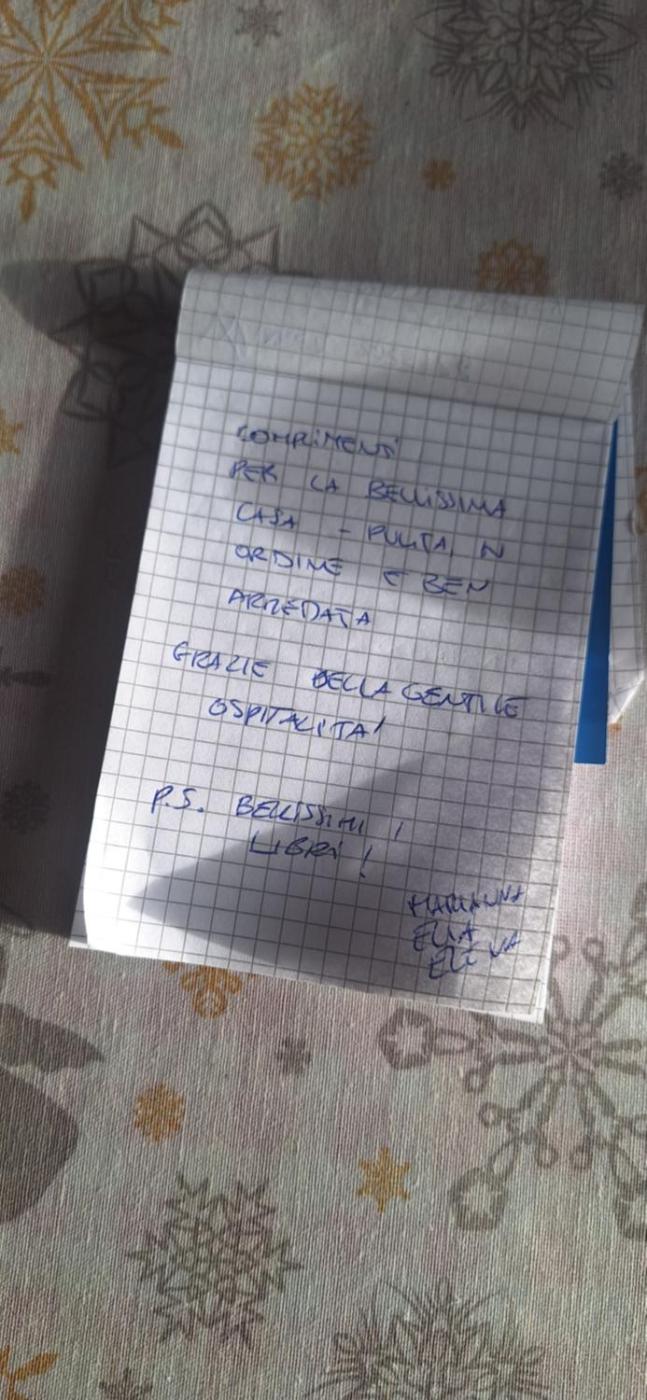 COMPLIMENTI
PER LA BELLISSIMA
CASA - PULITA, IN
ORDINE E BEN
ARREDATA
GRAZIE DELLA GENTILE
OSPITALITA'
P.S. BELLISSIMI I
LIBRI!
MARIANNA